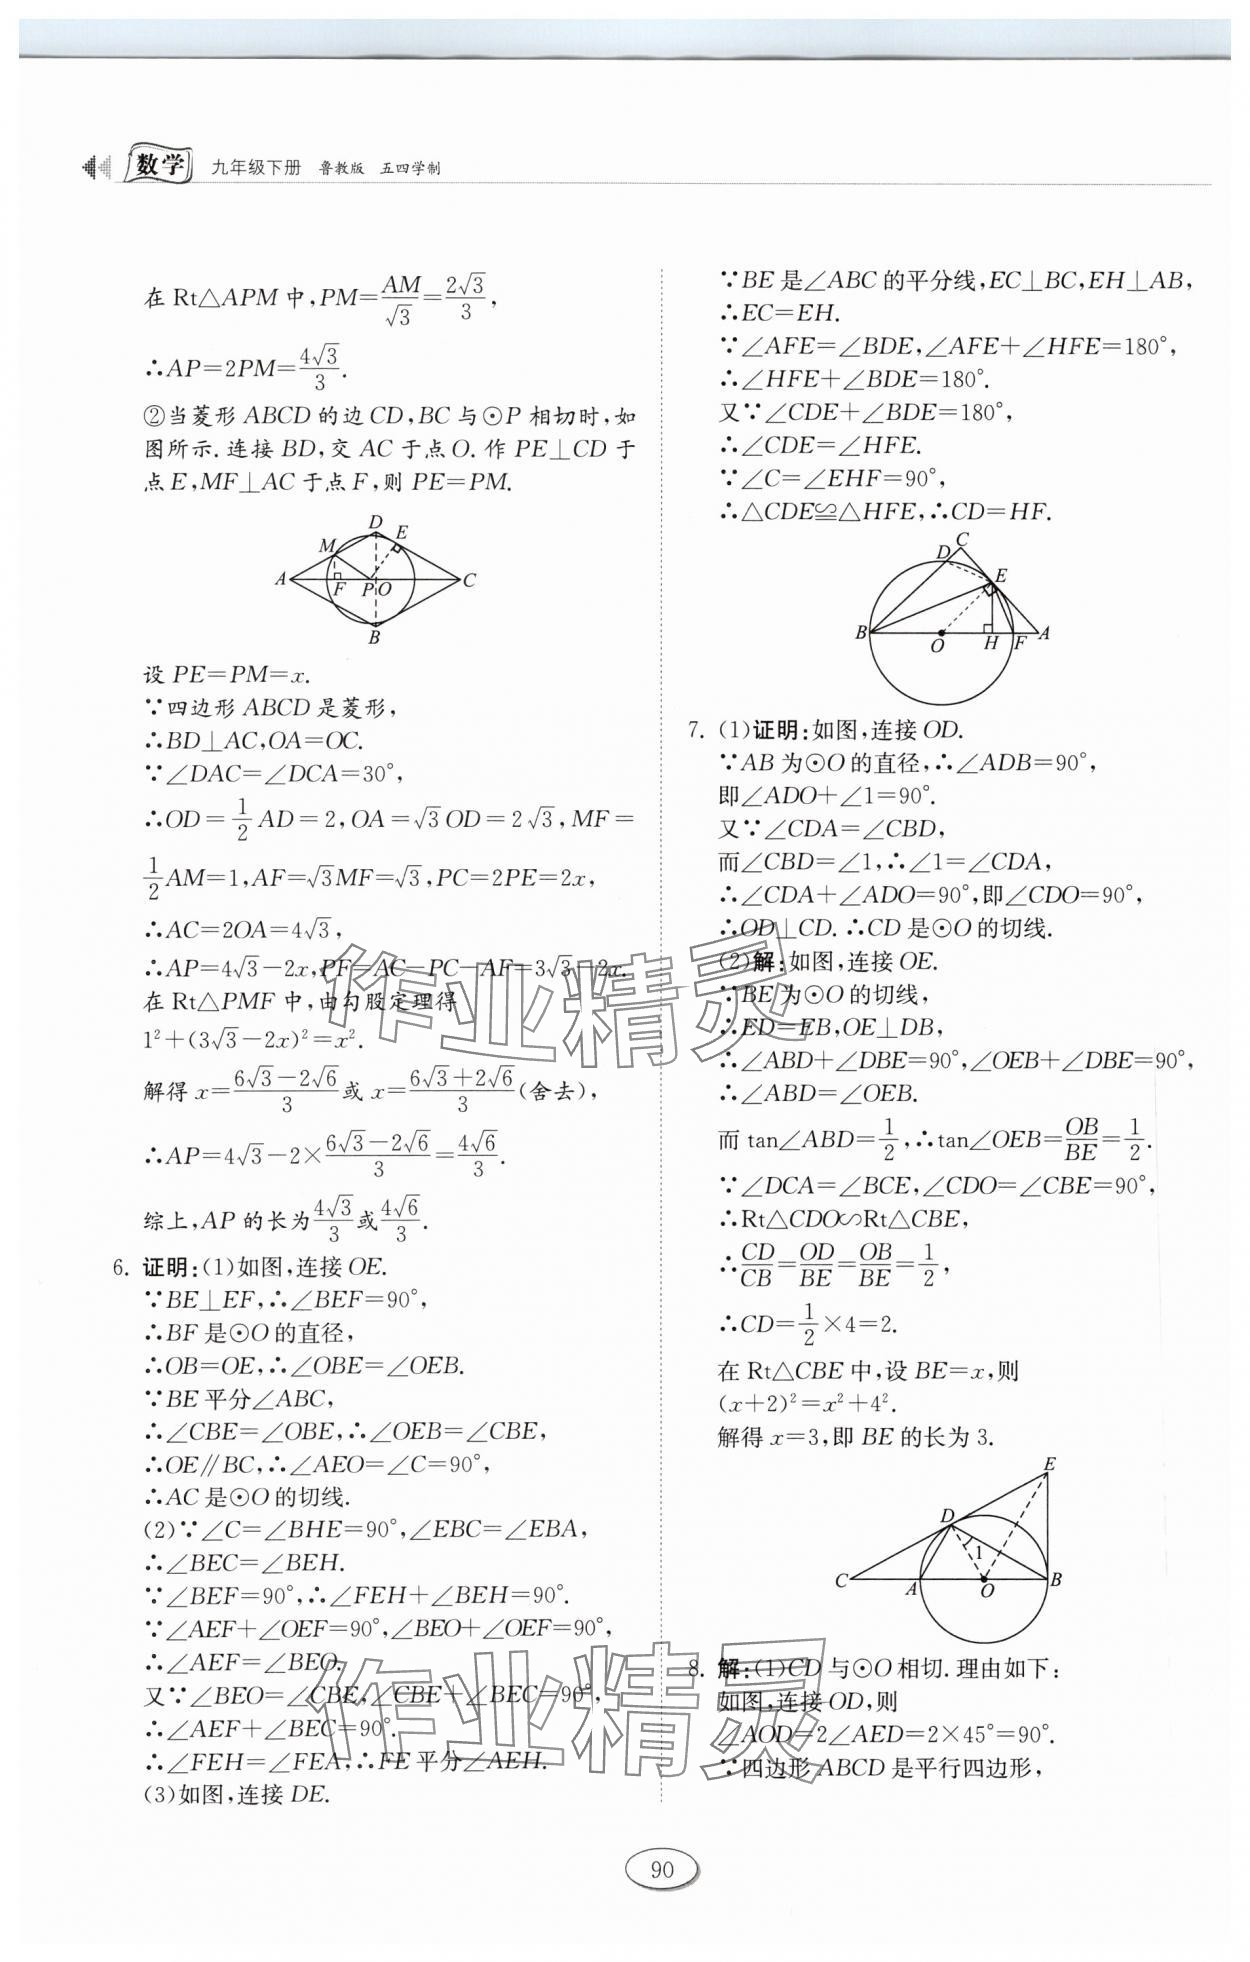 数学 九年级下册 鲁教版 五四学制
在 Rt△APM 中,PM=AM/√3=2√3/3,
∴AP=2PM=4√3/3.
②当菱形 ABCD 的边 CD,BC 与⊙P 相切时,如
图所示.连接 BD,交 AC 于点 O.作 PE⊥CD 于
点 E,MF⊥AC 于点 F,则 PE=PM.
D
M
E
A
F
P
O
C
B
设 PE=PM=x.
∵四边形 ABCD 是菱形,
∴BD⊥AC,OA=OC.
∵∠DAC=∠DCA=30°,
∴OD=1/2 AD=2,OA=√3 OD=2√3,MF=
1/2 AM=1,AF=√3MF=√3,PC=2PE=2x,
∴AC=2OA=4√3,
∴AP=4√3-2x,PF=AC-PC-AF=3√3-2x.
在 Rt△PMF 中,由勾股定理得
1²+(3√3-2x)²=x².
解得 x=(6√3-2√6)/3 或 x=(6√3+2√6)/3(舍去),
∴AP=4√3-2×(6√3-2√6)/3=4√6/3.
综上,AP 的长为 4√3/3 或 4√6/3.
6. 证明:(1)如图,连接 OE.
∵BE⊥EF,∴∠BEF=90°,
∴BF 是⊙O 的直径,
∴OB=OE,∴∠OBE=∠OEB.
∵BE 平分∠ABC,
∴∠CBE=∠OBE,∴∠OEB=∠CBE,
∴OE∥BC,∴∠AEO=∠C=90°,
∴AC 是⊙O 的切线.
(2)∵∠C=∠BHE=90°,∠EBC=∠EBA,
∴∠BEC=∠BEH.
∵∠BEF=90°,∴∠FEH+∠BEH=90°.
∵∠AEF+∠OEF=90°,∠BEO+∠OEF=90°,
∴∠AEF=∠BEO.
又∵∠BEO=∠CBE,∠CBE+∠BEC=90°,
∴∠AEF+∠BEC=90°.
∴∠FEH=∠FEA,∴FE 平分∠AEH.
(3)如图,连接 DE.
∵BE 是∠ABC 的平分线,EC⊥BC,EH⊥AB,
∴EC=EH.
∵∠AFE=∠BDE,∠AFE+∠HFE=180°,
∴∠HFE+∠BDE=180°.
又∵∠CDE+∠BDE=180°,
∴∠CDE=∠HFE.
∵∠C=∠EHF=90°,
∴△CDE≌△HFE,∴CD=HF.
C
D
E
B
O
H
F
A
7. (1)证明:如图,连接 OD.
∵AB 为⊙O 的直径,∴∠ADB=90°,
即∠ADO+∠1=90°.
又∵∠CDA=∠CBD,
而∠CBD=∠1,∴∠1=∠CDA,
∴∠CDA+∠ADO=90°,即∠CDO=90°,
∴OD⊥CD.∴CD 是⊙O 的切线.
(2)解:如图,连接 OE.
∵BE 为⊙O 的切线,
∴ED=EB,OE⊥DB,
∴∠ABD+∠DBE=90°,∠OEB+∠DBE=90°,
∴∠ABD=∠OEB.
而 tan∠ABD=1/2,∴tan∠OEB=OB/BE=1/2.
∵∠DCA=∠BCE,∠CDO=∠CBE=90°,
∴Rt△CDO∽Rt△CBE,
∴CD/CB=OD/BE=OB/BE=1/2,
∴CD=1/2×4=2.
在 Rt△CBE 中,设 BE=x,则
(x+2)²=x²+4².
解得 x=3,即 BE 的长为 3.
E
D
1
C
A
O
B
8. 解:(1)CD 与⊙O 相切.理由如下:
如图,连接 OD,则
∠AOD=2∠AED=2×45°=90°.
∵四边形 ABCD 是平行四边形,
90
作业精灵
作业精灵